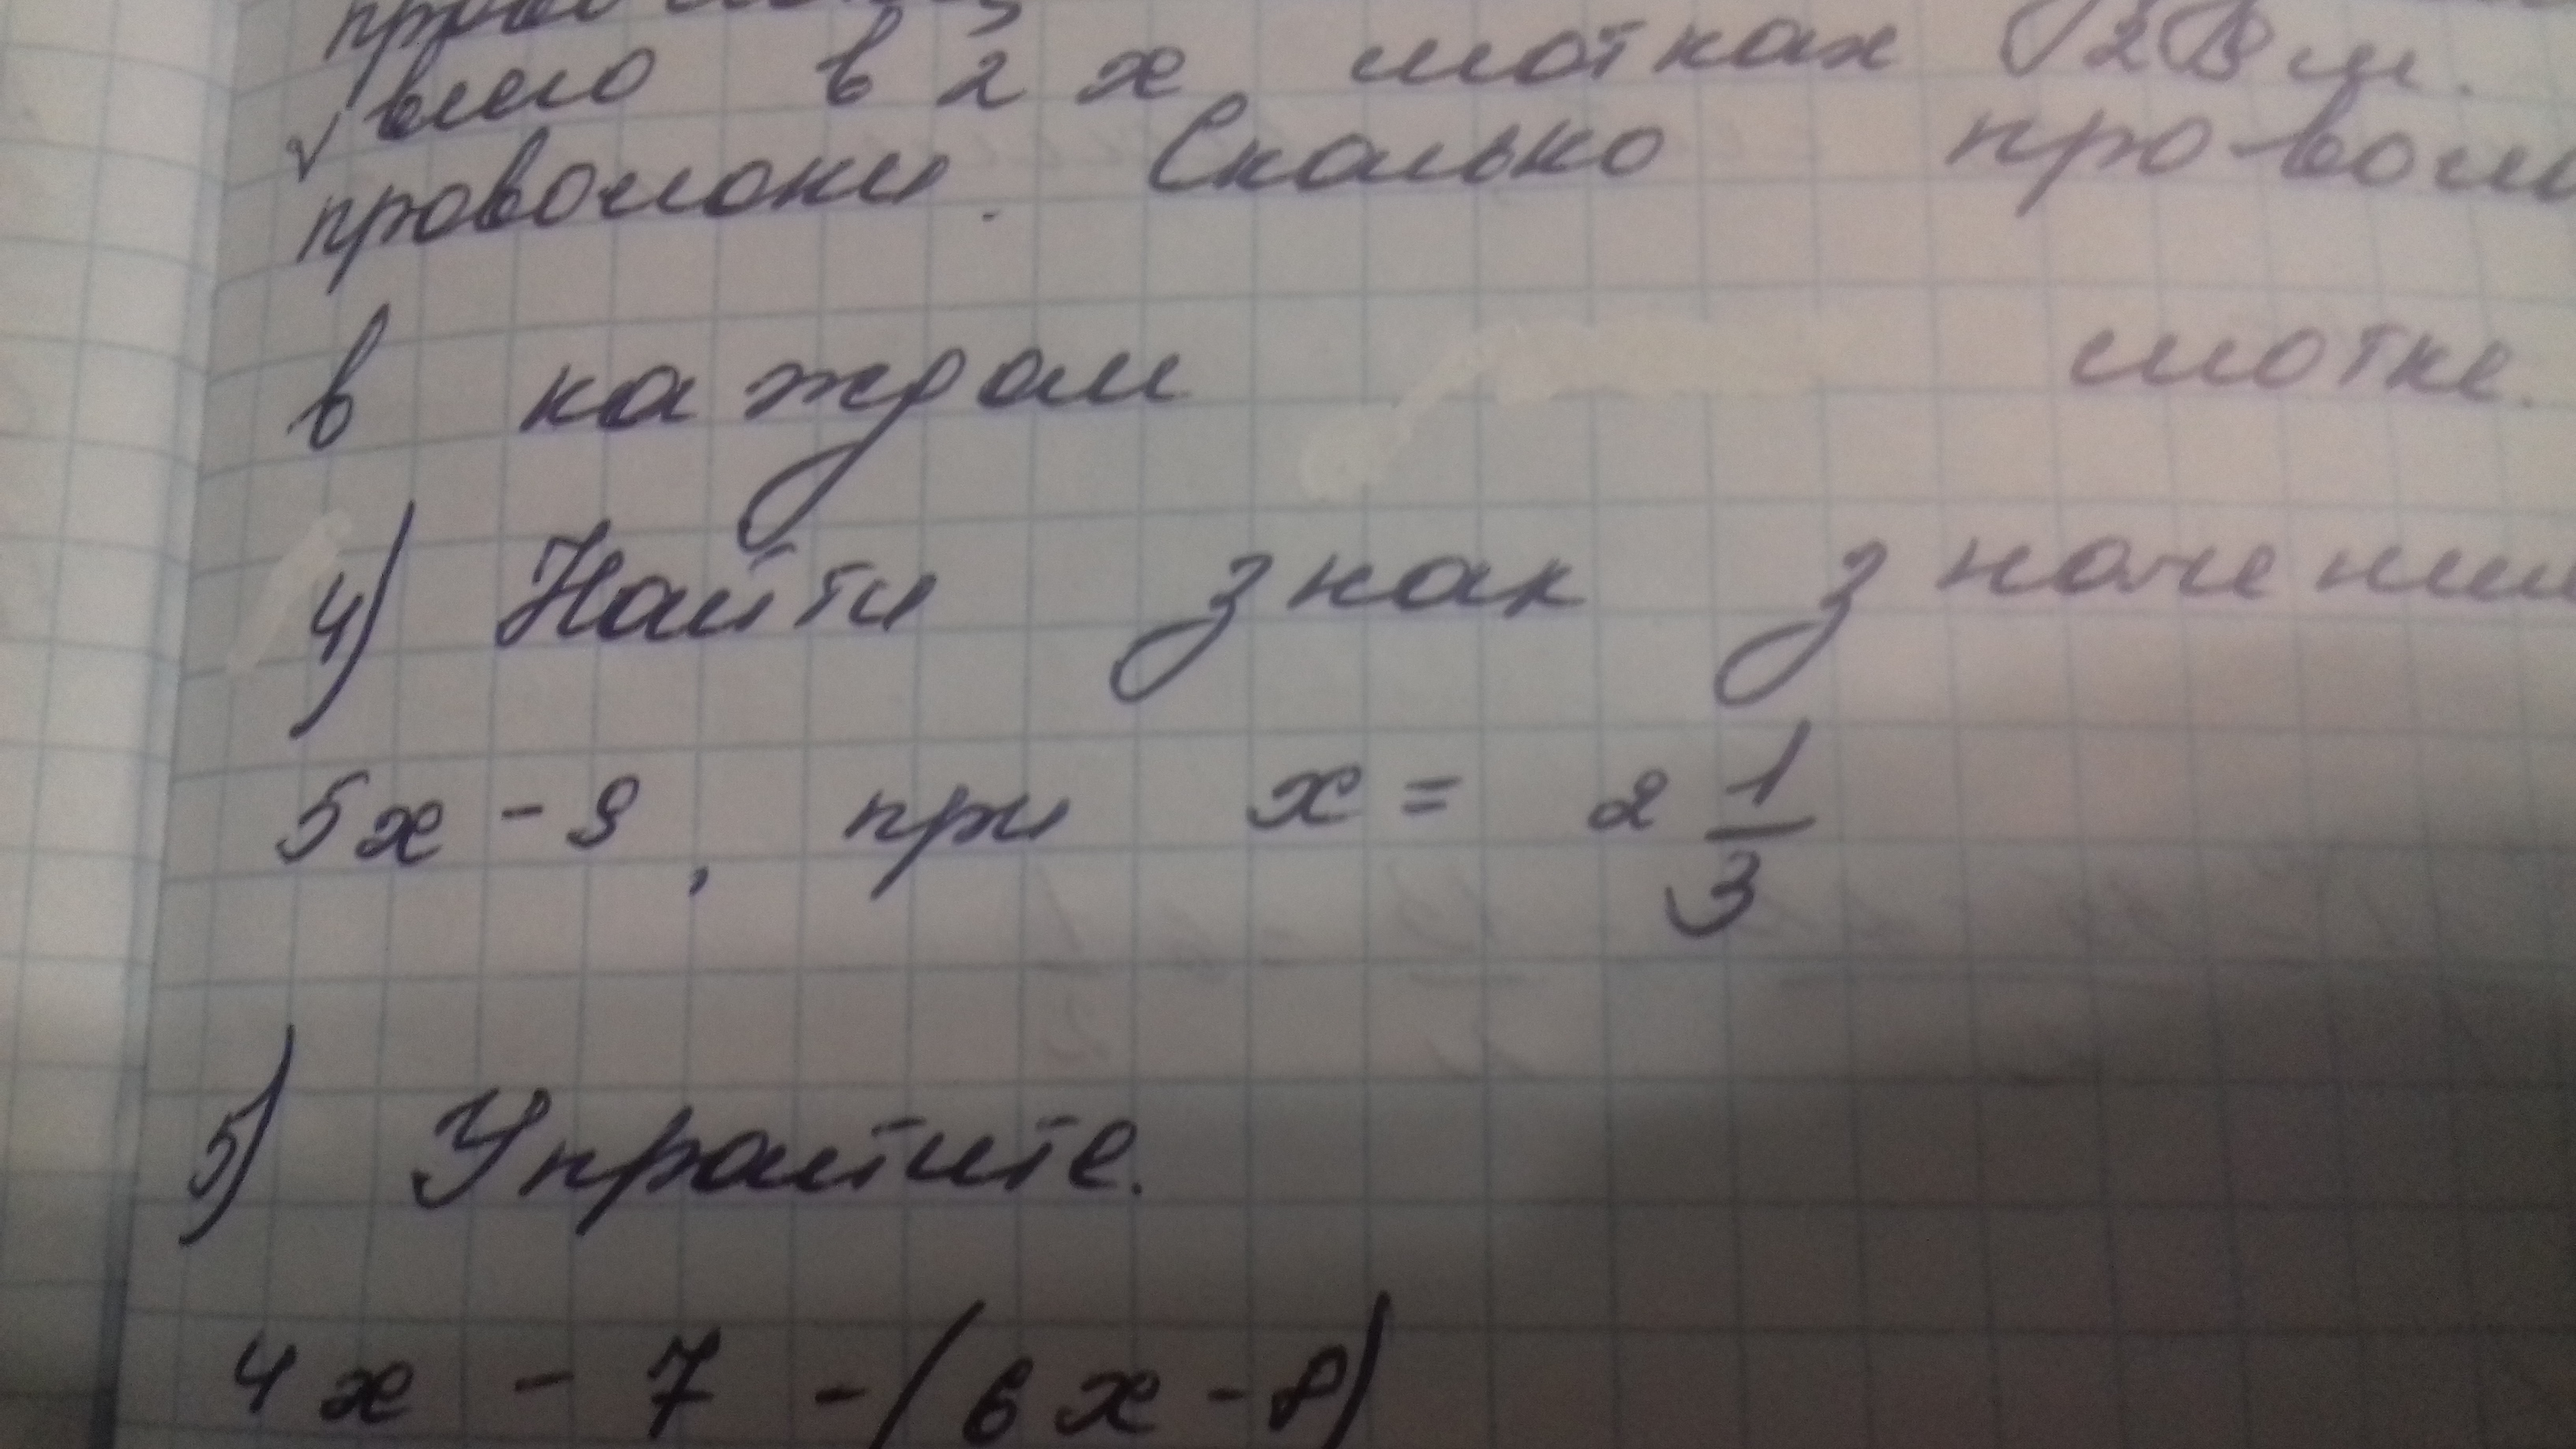 всего в 2 х мотках 128 м.
проволоки. Сколько провол
в каждом мотке.
4) Найти знак значени
5x - 9, при x = 2 1/3
5) Упростите.
4x - 7 - (6x - 8)